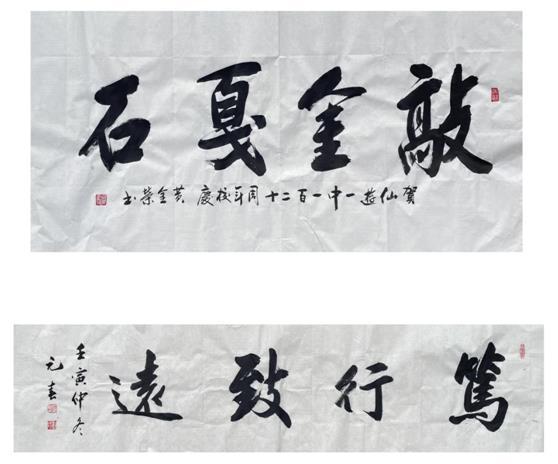 敲金戛石
賀仙遊一中一百二十周年校慶 黄金榮书
篤行致遠
壬寅仲冬
元春